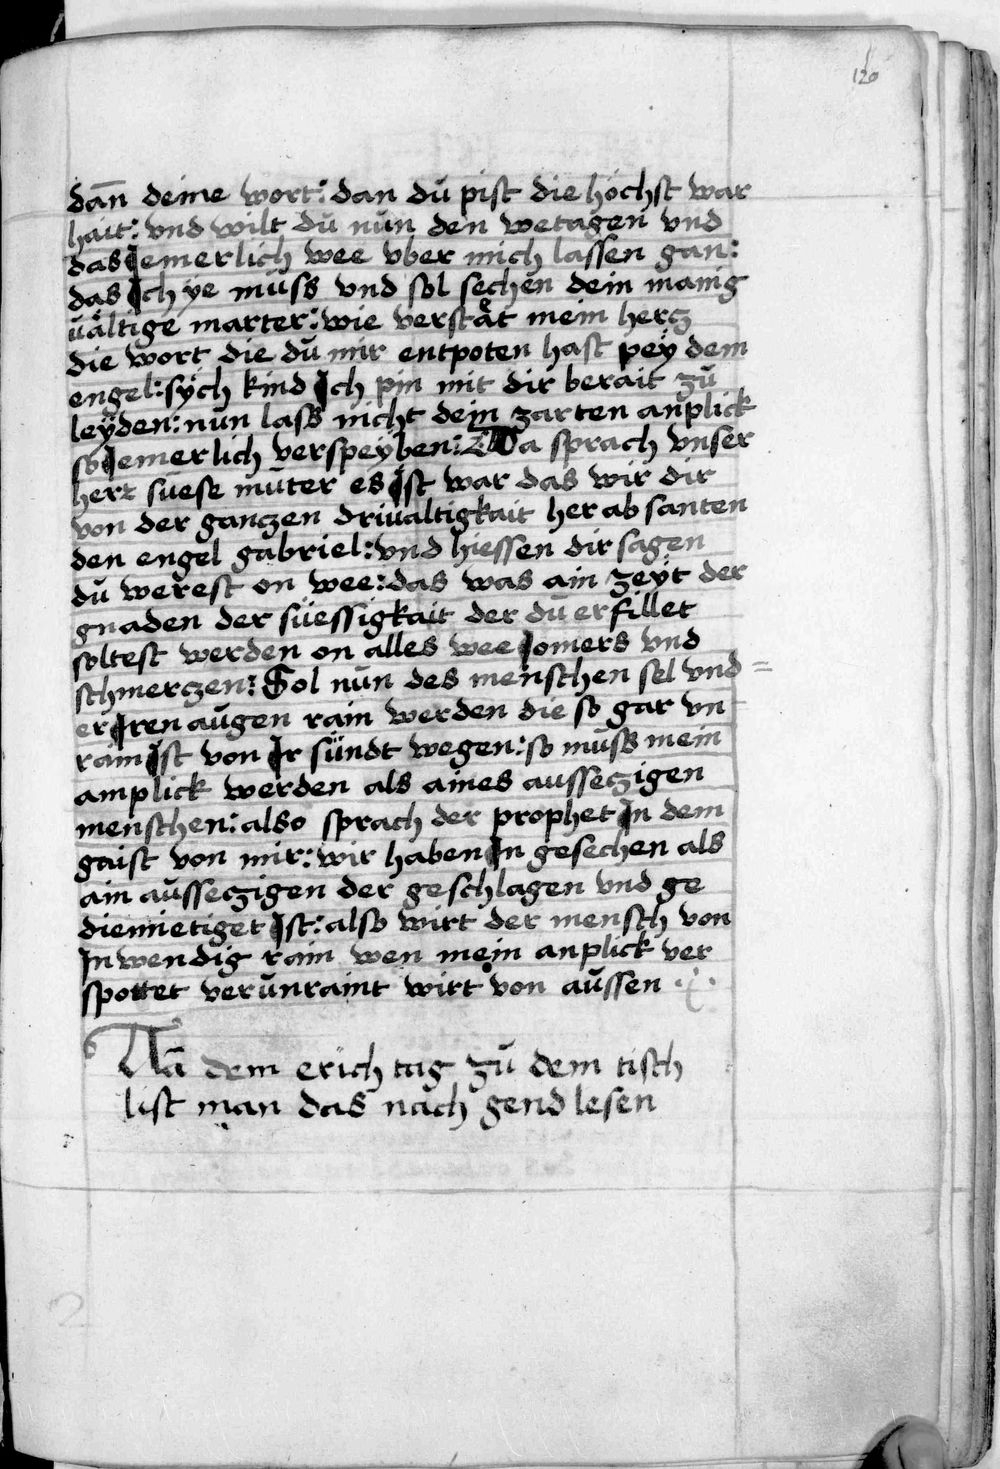 120
dan̄ deine wort: dan dŭ pist die höchst war
hait: vnd wilt dŭ nŭn den wetagen vnd
das Iemerlich wee vber mich lassen gan:
das Ich ÿe mŭss vnd sol sechen dein manig
uältige marter: wie verstät mein hercz
die wort die dŭ mir entpoten hast peÿ dem
engel: sÿch kind Ich pin mit dir berait zŭ
leÿden: nŭn lass nicht dein zarten anplick
so Iemerlich verspeÿben: Da sprach vnser
herr sŭese mŭter es Ist war das wir dir
von der ganczen driualtigkait her ab santen
den engel gabriel: vnd hiessen dir sagen
dŭ werest on wee: das was ain zeÿt der
gnaden der süessigkait der dŭ erfillet
soltest werden on alles wee Iomers vnd
schmerczen: Sol nŭn des menschen sel vnd =
er Iren aŭgen rain werden die so gar vn
rain Ist von Ir sündt wegen: so mŭss mein
amplick werden als aines ausseczigen
menschen: also sprach der prophet In dem
gaist von mir: wir haben In gesechen als
ain aŭsseczigen der geschlagen vnd ge
diemietiget Ist: also wirt der mensch von
Inwendig rain wen mein anplick ver
spottet verŭnraint wirt von aŭssen
An̄ dem erich tag zŭ dem tisch
list man das nach gend lesen